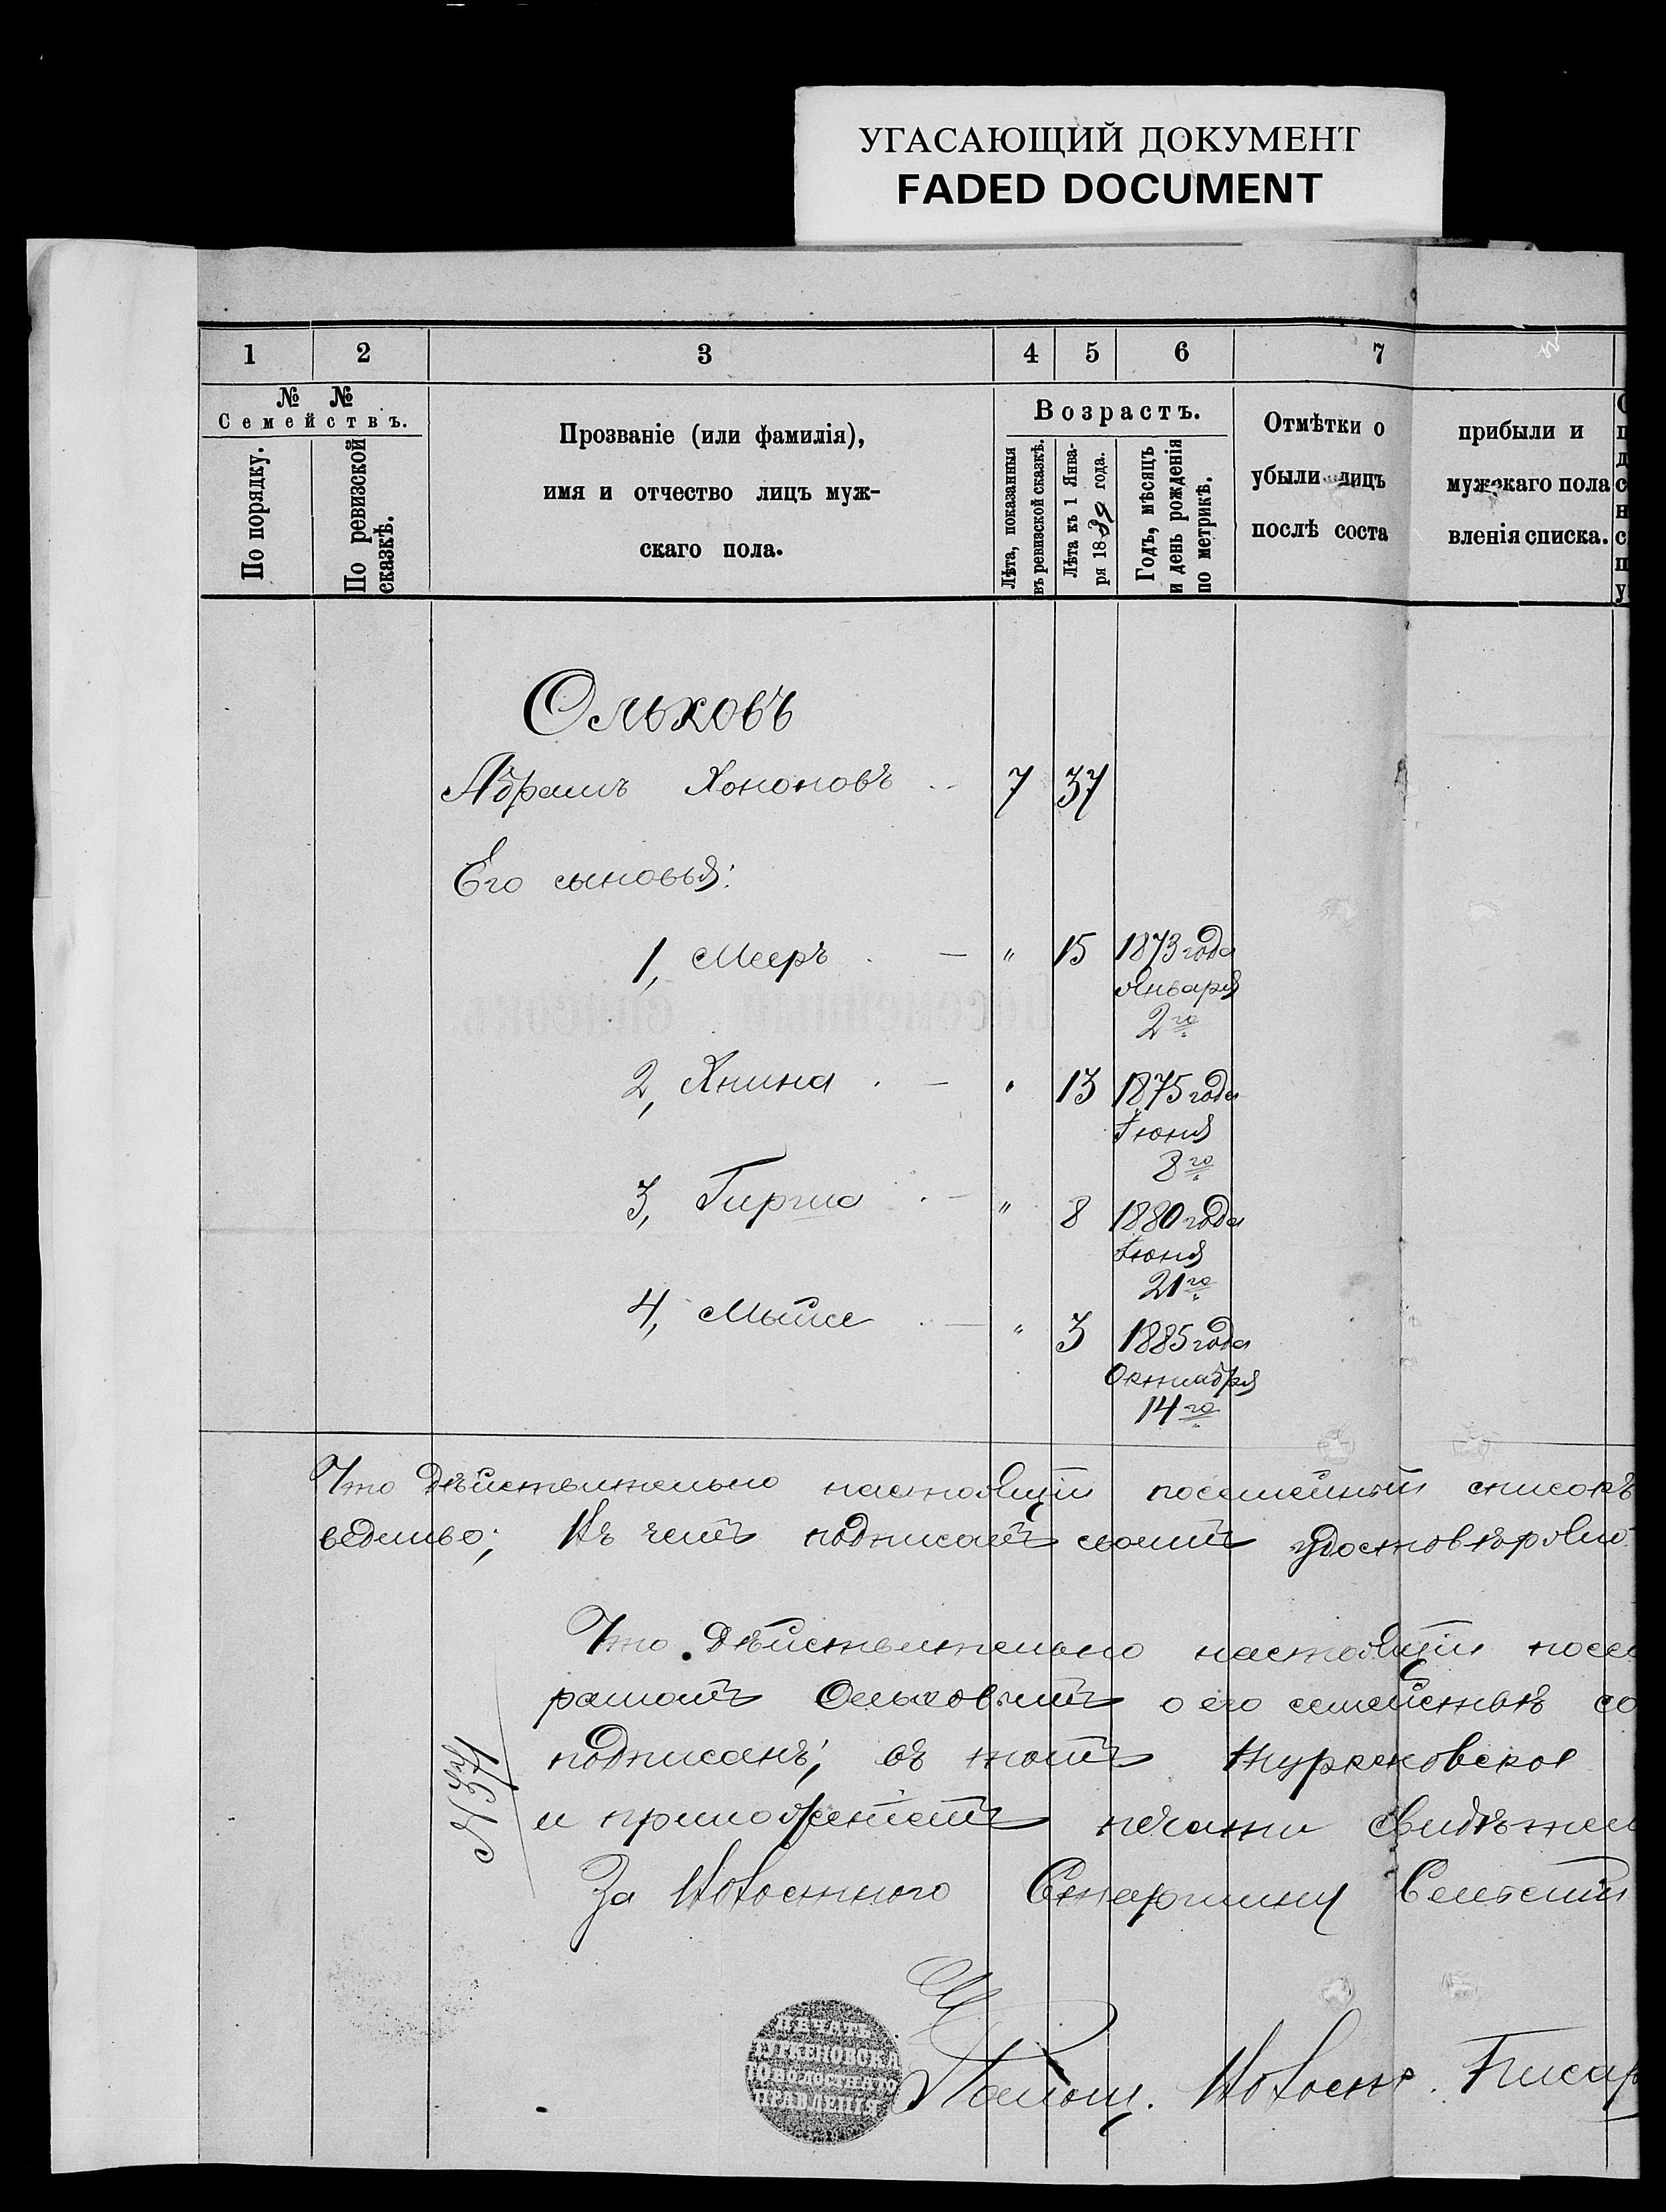 УГАСАЮЩИЙ ДОКУМЕНТ
FADED DOCUMENT
1 2 3 4 5 6 7
№ №
Семействъ.
По порядку.
По ревизской сказкѣ.
Прозваніе (или фамилія),
имя и отчество лицъ муж-
скаго пола.
Возрастъ.
Лѣта, показанныя
въ ревизской сказкѣ.
Лѣта къ 1 Янва-
ря 1889 года.
Годъ, мѣсяцъ
и день рожденія
по метрикѣ.
Отмѣтки о прибыли и
убыли лицъ мужскаго пола
послѣ составленія списка.
Ольховъ
Абрамъ Хононовъ 7 37
Его сыновья:
1, Мееръ — " 15 1873 года
Января
2го
2, Хнина — " 13 1875 года
Іюня
8го
3, Гирша — " 8 1880 года
Іюня
21го
4, Мыше — " 3 1885 года
Октября
14го
Что дѣйствительно настоящій посемейный списокъ
къ чему подписомъ своимъ удостовѣряю
Что дѣйствительно настоящій посе
рамомъ Ольховымъ о его семействѣ со
подписанъ; въ томъ Туркеновское
и приложеніемъ печати свидѣтел
№ 371
За Волостного Старшину Сельскій
Помощ. Волостн. Писар
ПЕЧАТЬ
ТУРКЕНОВСКА
ГО ВОЛОСТНАГО
ПРАВЛЕНІЯ